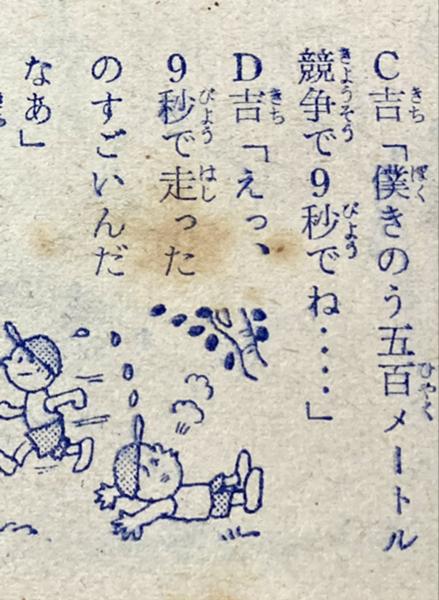 C吉「僕きのう五百メートル
競争で9秒でね‥‥」
D吉「えっ、
9秒で走った
のすごいんだ
なあ」